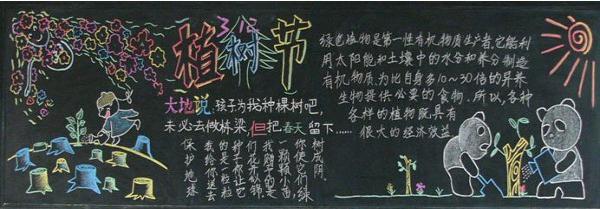 3.12
植树节
大地说:孩子为我种棵树吧,
未必去做栋梁,但把春天留下……
绿色植物是第一性有机物质生产者,它能利
用太阳能和土壤中的水分和养分制造
有机物质,为比自身多10~30倍的异养
生物提供必要的食物。所以,各种
各样的植物既具有
很大的经济效益
树成阴。
你使它们绿
一颗颗小苗
我赠予的是
们花似锦。
种子,你让它
的是一粒粒
我给你送去
保护地球